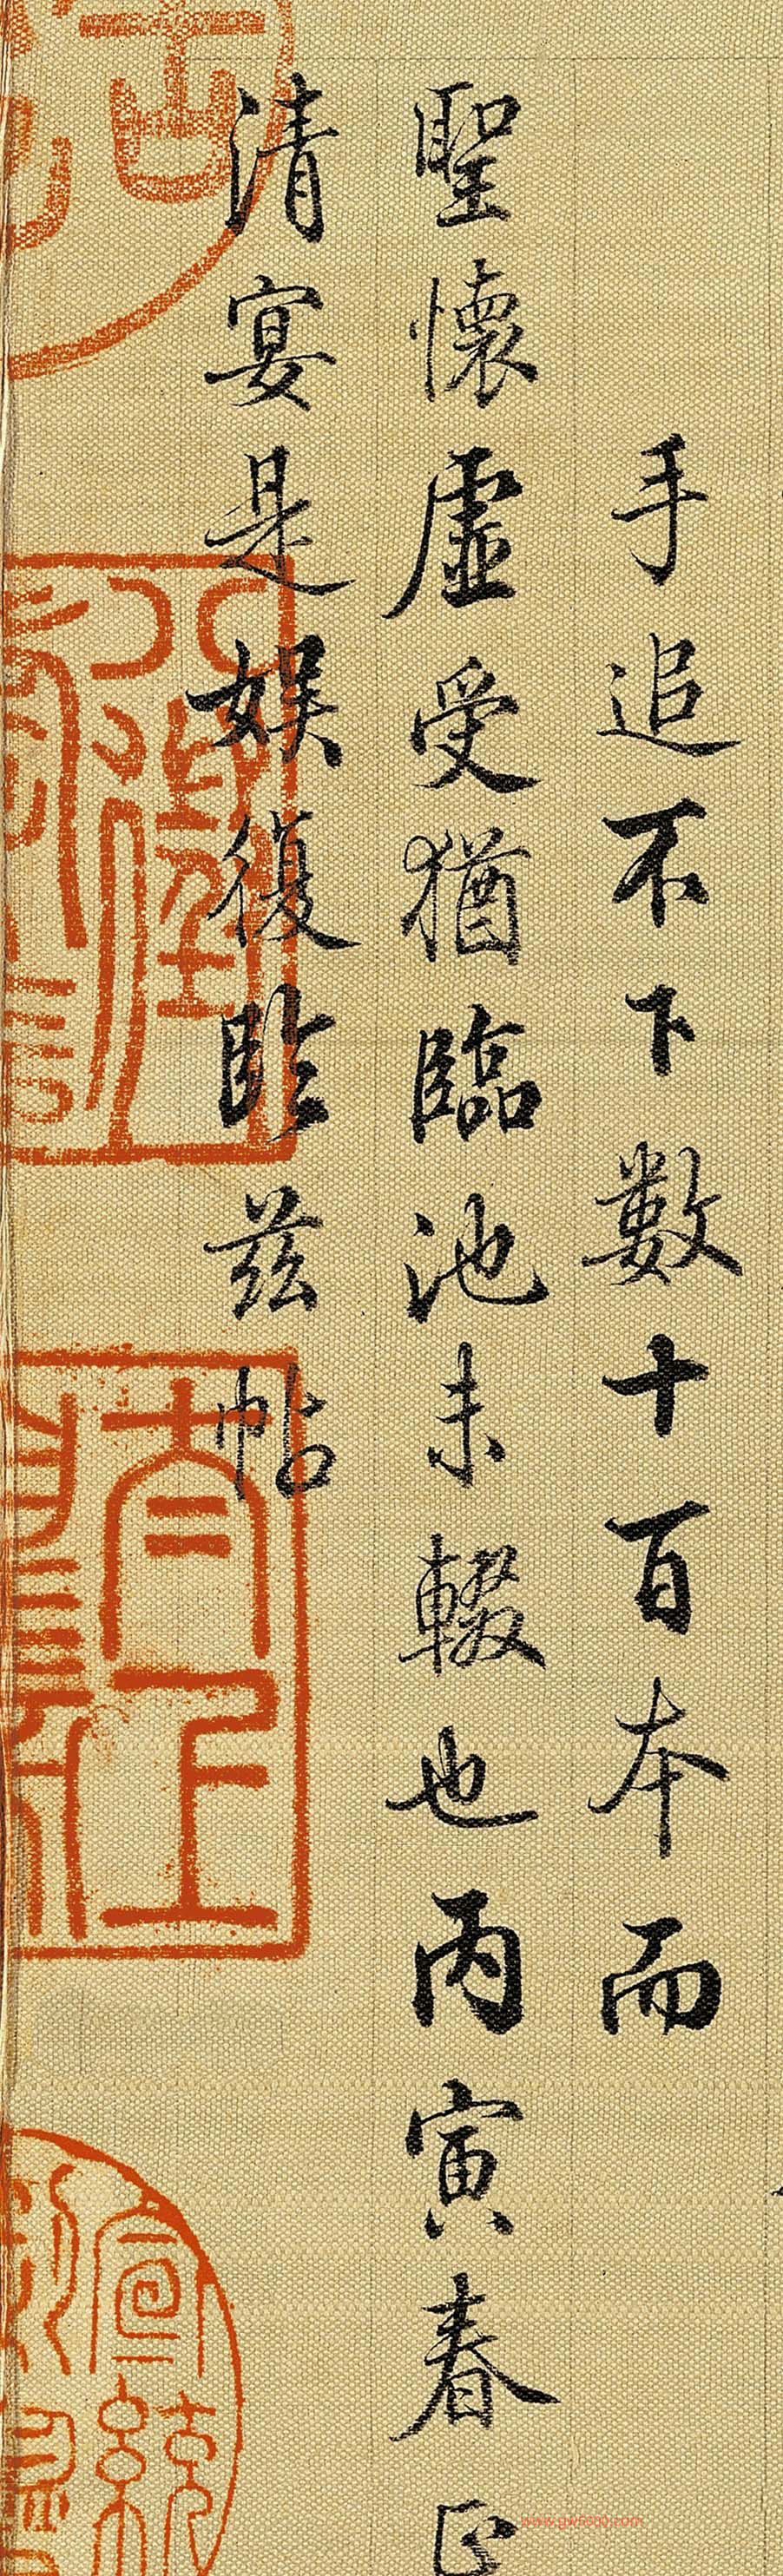 手追不下數十百本而
聖懷虛受猶臨池未輟也丙寅春正
清宴是娛復臨茲帖
太上
宣統
www.gw5000.com